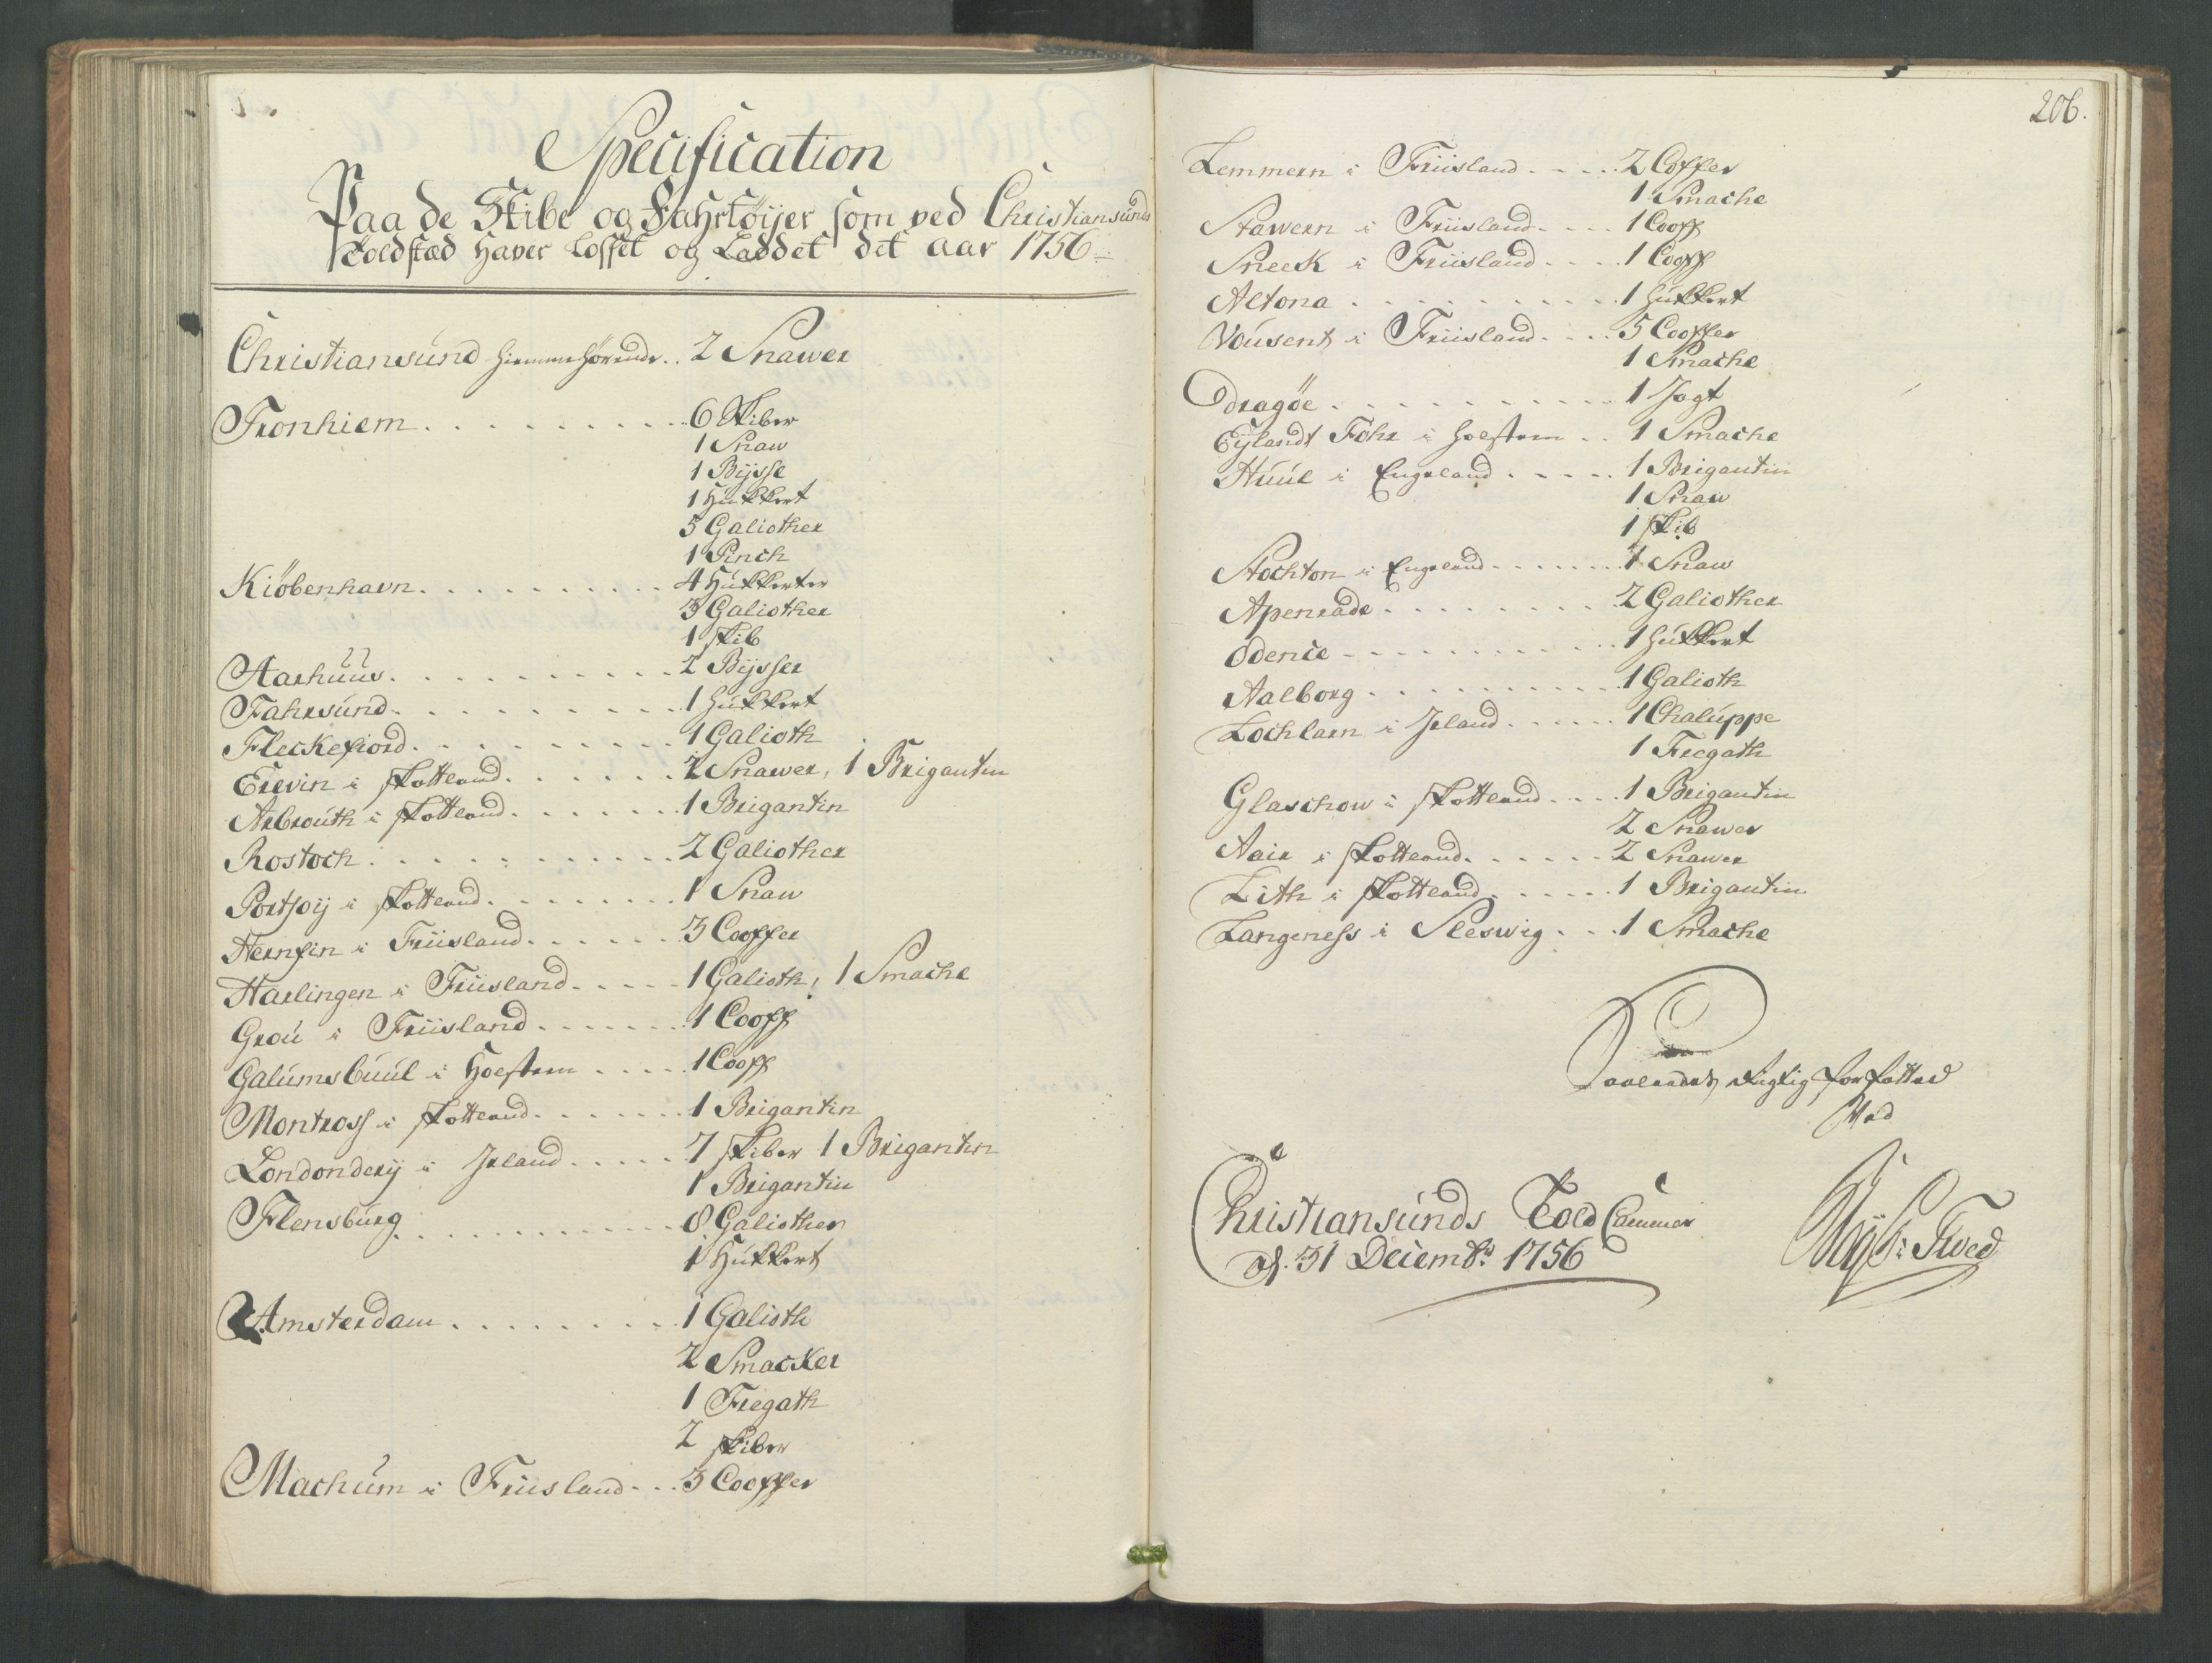 Specification
Paa de Skibe og Fahrtøijer som ved Christiansunds
Toldsted haver Losset og Laddet det aar 1756
Christiansúnd hiemmehørende .. 2 Snawer
Tronhiem . . . . . . . . . . 6 Skiber
1 Snaw
1 Bÿsse
1 Húkkert
5 Galiother
1 Pinch
Kiøbenhavn . . . . . . . . . 4 Húkkerter
3 Galiother
1 skib
Aarhúús . . . . . . . . . . 2 Bÿsser
Fahrsúnd . . . . . . . . . 1 húkkert
Fleckefiord . . . . . . . . . 1 Galioth
Erevin i skottland . . . . . . 2 Snawer, 1 Brigantin
Arbroúth i skottland . . . . . . 1 Brigantin
Rostoch . . . . . . . . . . 2 Galiother
Portsoÿ i skottland . . . . . . . 1 Snaw
Hernsin i Friisland . . . . . . 3 Cooffer
Harlingen i Friisland . . . . . 1 Galioth, 1 Smache
Groú i Friisland . . . . . . . 1 Cooff
Galúmsbúúl i Holsten . . . . 1 Cooff
Montross i skottland . . . . . . . 1 Brigantin
Londonderÿ i Irland . . . . . 7 skiber 1 Brigantin
1 Brigantin
Flensbúrg . . . . . . . . . . 8 Galiother
1 Húkkert
Amsterdam . . . . . . . . . 1 Galioth
2 Smacker
1 Fregath
2 skiber
Machúm i Friisland . . . 3 Cooffer
206.
Lemmern i Friisland . . . . 2 Coffer
1 Smache
Stawern i Friisland . . . . 1 Cooff
Sneek i Friisland . . . . 1 Cooff
Altona . . . . . . . . . . 1 húkkert
Woúsent i Friisland . . . . 5 Cooffer
1 Smache
Dragöe . . . . . . . . . . 1 Jagt
Eÿlandt Föhr i holsten . . 1 Smache
Húúl i Engeland . . . . . 1 Brigantin
1 Snaw
1 skib
Stochton i Engeland . . . . . . . 1 Snaw
Apenrade . . . . . . . . . 2 Galiother
Odence . . . . . . . . . . . 1 húkkert
Aalborg . . . . . . . . . . 1 Galioth
Lochlarn i Irland . . . . . . 1 Chalúppe
1 Fregath
Glaschow i skottland . . . . 1 Brigantin
2 Snawer
Aair i skottland . . . . . . 2 Snawer
Lith i skottland . . . . . . 1 Brigantin
Langeness i Sleswig . . . 1 Smache
Saaledes rigtig forfatted
Ved
Christiansúnds Told Cammer
d. 31 Decembr: 1756
Tved